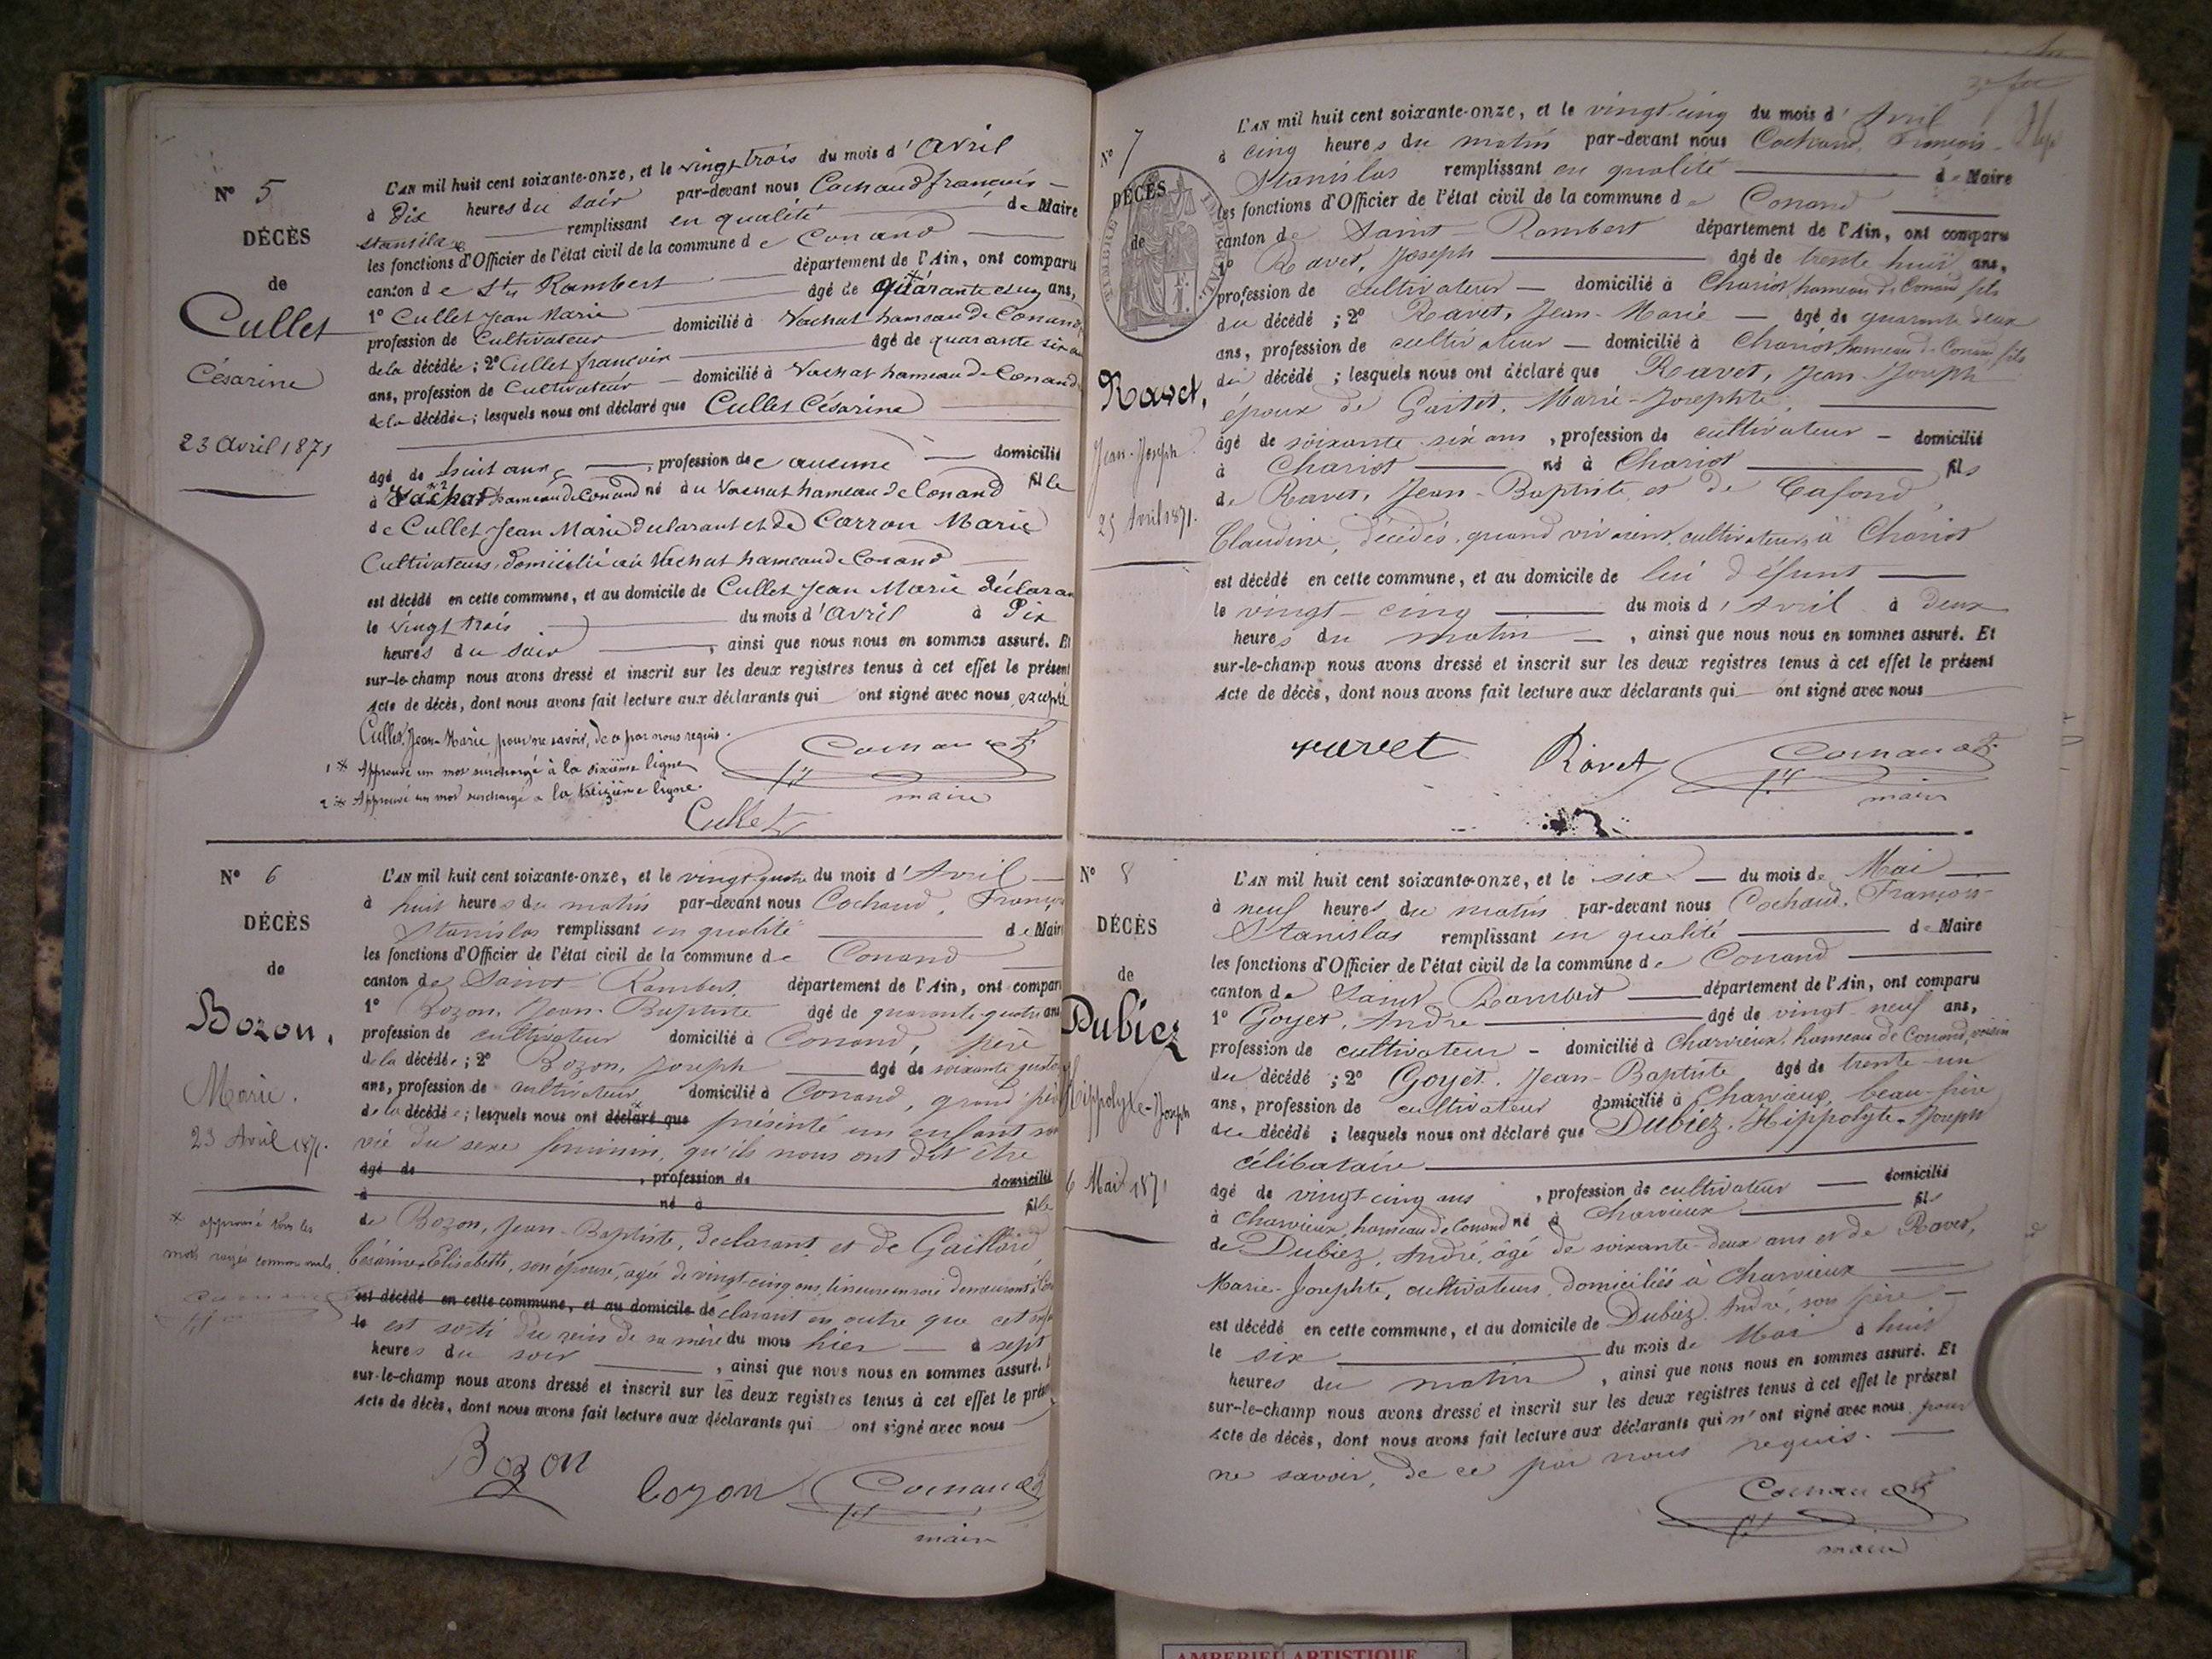 N° 5
DÉCÈS
de
Cullet
Césarine
23 avril 1871
L'AN mil huit cent soixante-onze, et le vingt trois du mois d'avril
à Dix heures du soir par-devant nous Cochaud françois-
stanislas remplissant en qualité de Maire
les fonctions d'Officier de l'état civil de la commune de Conand
canton de St Rambert département de l'Ain, ont comparu
1° Cullet Jean Marie âgé de quarante ans,
profession de Cultivateur domicilié à Vachat hameau de Conand
de la décédée; 2° Cullet francois âgé de quarante six
ans, profession de Cultivateur domicilié à Vachat hameau de Conand
de la décédée; lesquels nous ont déclaré que Cullet Césarine
âgé de huit ans, profession de aucune domicilié
à Vachat hameau de Conand né au Vachat hameau de Conand fille
de Cullet Jean Marie declarant et de Carron Marie
Cultivateurs domicilié au Vachat hameau de Conand
est décédé en cette commune, et au domicile de Cullet Jean Marie déclaran
le vingt trois du mois d'avril à Dix
heures du soir, ainsi que nous nous en sommes assuré. Et
sur-le-champ nous avons dressé et inscrit sur les deux registres tenus à cet effet le présent
Acte de décès, dont nous avons fait lecture aux déclarants qui ont signé avec nous, excepté
Cullet, Jean-Marie pour ne savoir, de ce par nous requis.
1 * Approuvé un mot surchargé à la sixième ligne
2 * Approuvé un mot surchargé à la treizième ligne.
Cochaud
maire
Cullet
N° 6
DÉCÈS
de
Bozon,
Marie.
23 Avril 1871.
* approuvé tous les
mots rayés comme nuls.
L'AN mil huit cent soixante-onze, et le vingt quatre du mois d'Avril
à huit heures du matin par-devant nous Cochaud, François
Stanislas remplissant en qualité de Maire
les fonctions d'Officier de l'état civil de la commune de Conand
canton de Saint Rambert département de l'Ain, ont comparu
1° Bozon, Jean-Baptiste âgé de quarante quatre ans
profession de cultivateur domicilié à Conand, père
de la décédée; 2° Bozon, Joseph âgé de soixante quatorze
ans, profession de cultivateur domicilié à Conand, grand père
de la décédée; lesquels nous ont déclaré que présenté un enfant sans
vie du sexe féminin, qu'ils nous ont dit être
âgé de , profession de domicilié
à né à fille
de Bozon, Jean-Baptiste, déclarant et de Gaillard
Césarine-Elisabeth, son épouse, agée de vingt-cinq ans,
est décédé en cette commune, et au domicile de clarant en outre que cet enfant
le est sorti du sein de sa mère du mois hier à sept
heures du soir, ainsi que nous nous en sommes assuré.
sur-le-champ nous avons dressé et inscrit sur les deux registres tenus à cet effet le présent
Acte de décès, dont nous avons fait lecture aux déclarants qui ont signé avec nous
Bozon
bozon
Cochaud
maire
N° 7
DÉCÈS
de
Ravet,
Jean-Joseph
25 Avril 1871.
TIMBRE IMPERIAL
L'AN mil huit cent soixante-onze, et le vingt-cinq du mois d'Avril
à cinq heures du matin par-devant nous Cochaud, François-
Stanislas remplissant en qualité de Maire
les fonctions d'Officier de l'état civil de la commune de Conand
canton de Saint-Rambert département de l'Ain, ont comparu
1° Ravet, Joseph âgé de trente huit ans,
profession de cultivateur domicilié à Chariot, hameau de Conand fils
du décédé; 2° Ravet, Jean-Marie âgé de quarante deux
ans, profession de cultivateur domicilié à Chariot hameau de Conand fils
du décédé; lesquels nous ont déclaré que Ravet, Jean-Joseph
époux de Marie-Josephte,
âgé de soixante-six ans, profession de cultivateur domicilié
à Chariot né à Chariot fils
de Ravet, Jean-Baptiste et de
Claudine, décédés, quand vivaient, cultivateurs à Chariot
est décédé en cette commune, et au domicile de lui défunt
le vingt-cinq du mois d'Avril à deux
heures du matin, ainsi que nous nous en sommes assuré. Et
sur-le-champ nous avons dressé et inscrit sur les deux registres tenus à cet effet le présent
Acte de décès, dont nous avons fait lecture aux déclarants qui ont signé avec nous
ravet
Ravet
Cochaud
maire
N° 8
DÉCÈS
de
Dubiez
Hippolyte-Joseph
6 Mai 1871
L'AN mil huit cent soixante-onze, et le six du mois de Mai
à neuf heures du matin par-devant nous Cochaud, François-
Stanislas remplissant en qualité de Maire
les fonctions d'Officier de l'état civil de la commune de Conand
canton de Saint Rambert département de l'Ain, ont comparu
1° Goyet, André âgé de vingt-neuf ans,
profession de cultivateur domicilié à Charvieux, hameau de Conand, voisin
du décédé; 2° Goyet, Jean-Baptiste âgé de trente-un
ans, profession de cultivateur domicilié à Charvieux, beau-frère
du décédé; lesquels nous ont déclaré que Dubiez, Hippolyte-Joseph
célibataire
âgé de vingt-cinq ans, profession de cultivateur domicilié
à Charvieux, hameau de Conand né à Charvieux fils
de Dubiez, André, âgé de soixante-deux ans et de Ravet,
Marie-Josephte, cultivateurs, domiciliés à Charvieux
est décédé en cette commune, et au domicile de Dubiez, André, son père
le six du mois de Mai à huit
heures du matin, ainsi que nous nous en sommes assuré. Et
sur-le-champ nous avons dressé et inscrit sur les deux registres tenus à cet effet le présent
Acte de décès, dont nous avons fait lecture aux déclarants qui n'ont signé avec nous, pour
ne savoir, de ce par nous requis.
Cochaud
maire
AMBERIEU ARTISTIQUE